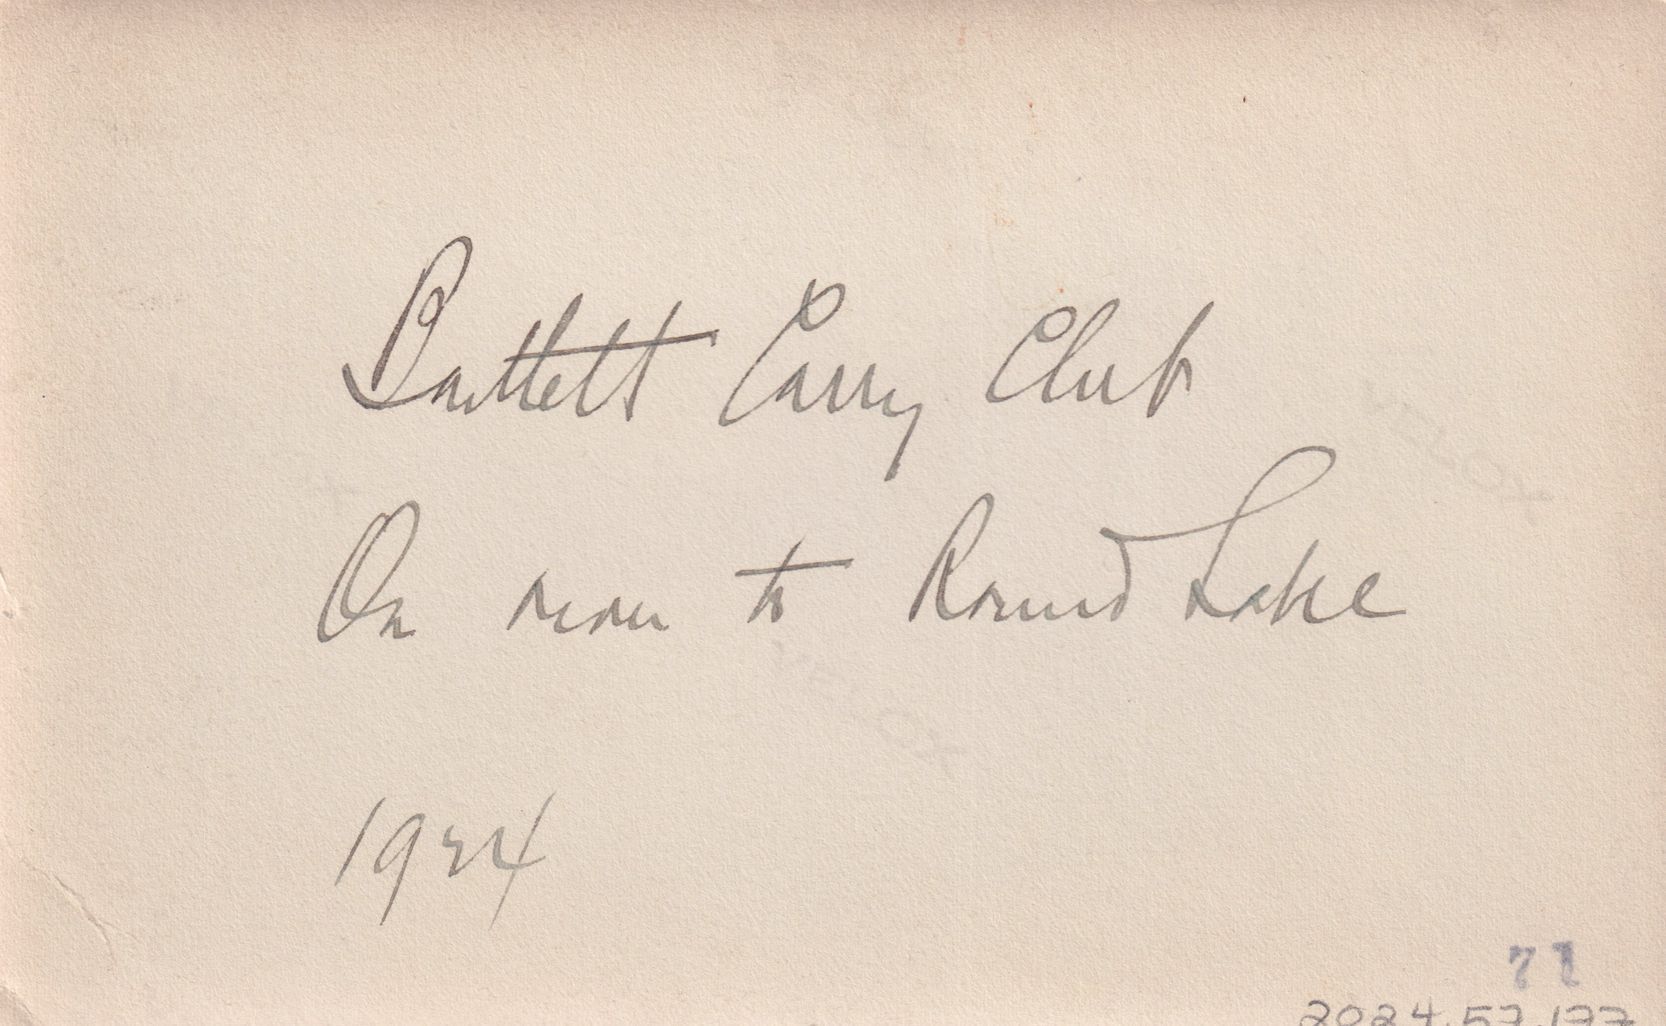 Bartlett Carry Club
On river to Round Lake
1924
VELOX
VELOX
71
2024.57.177